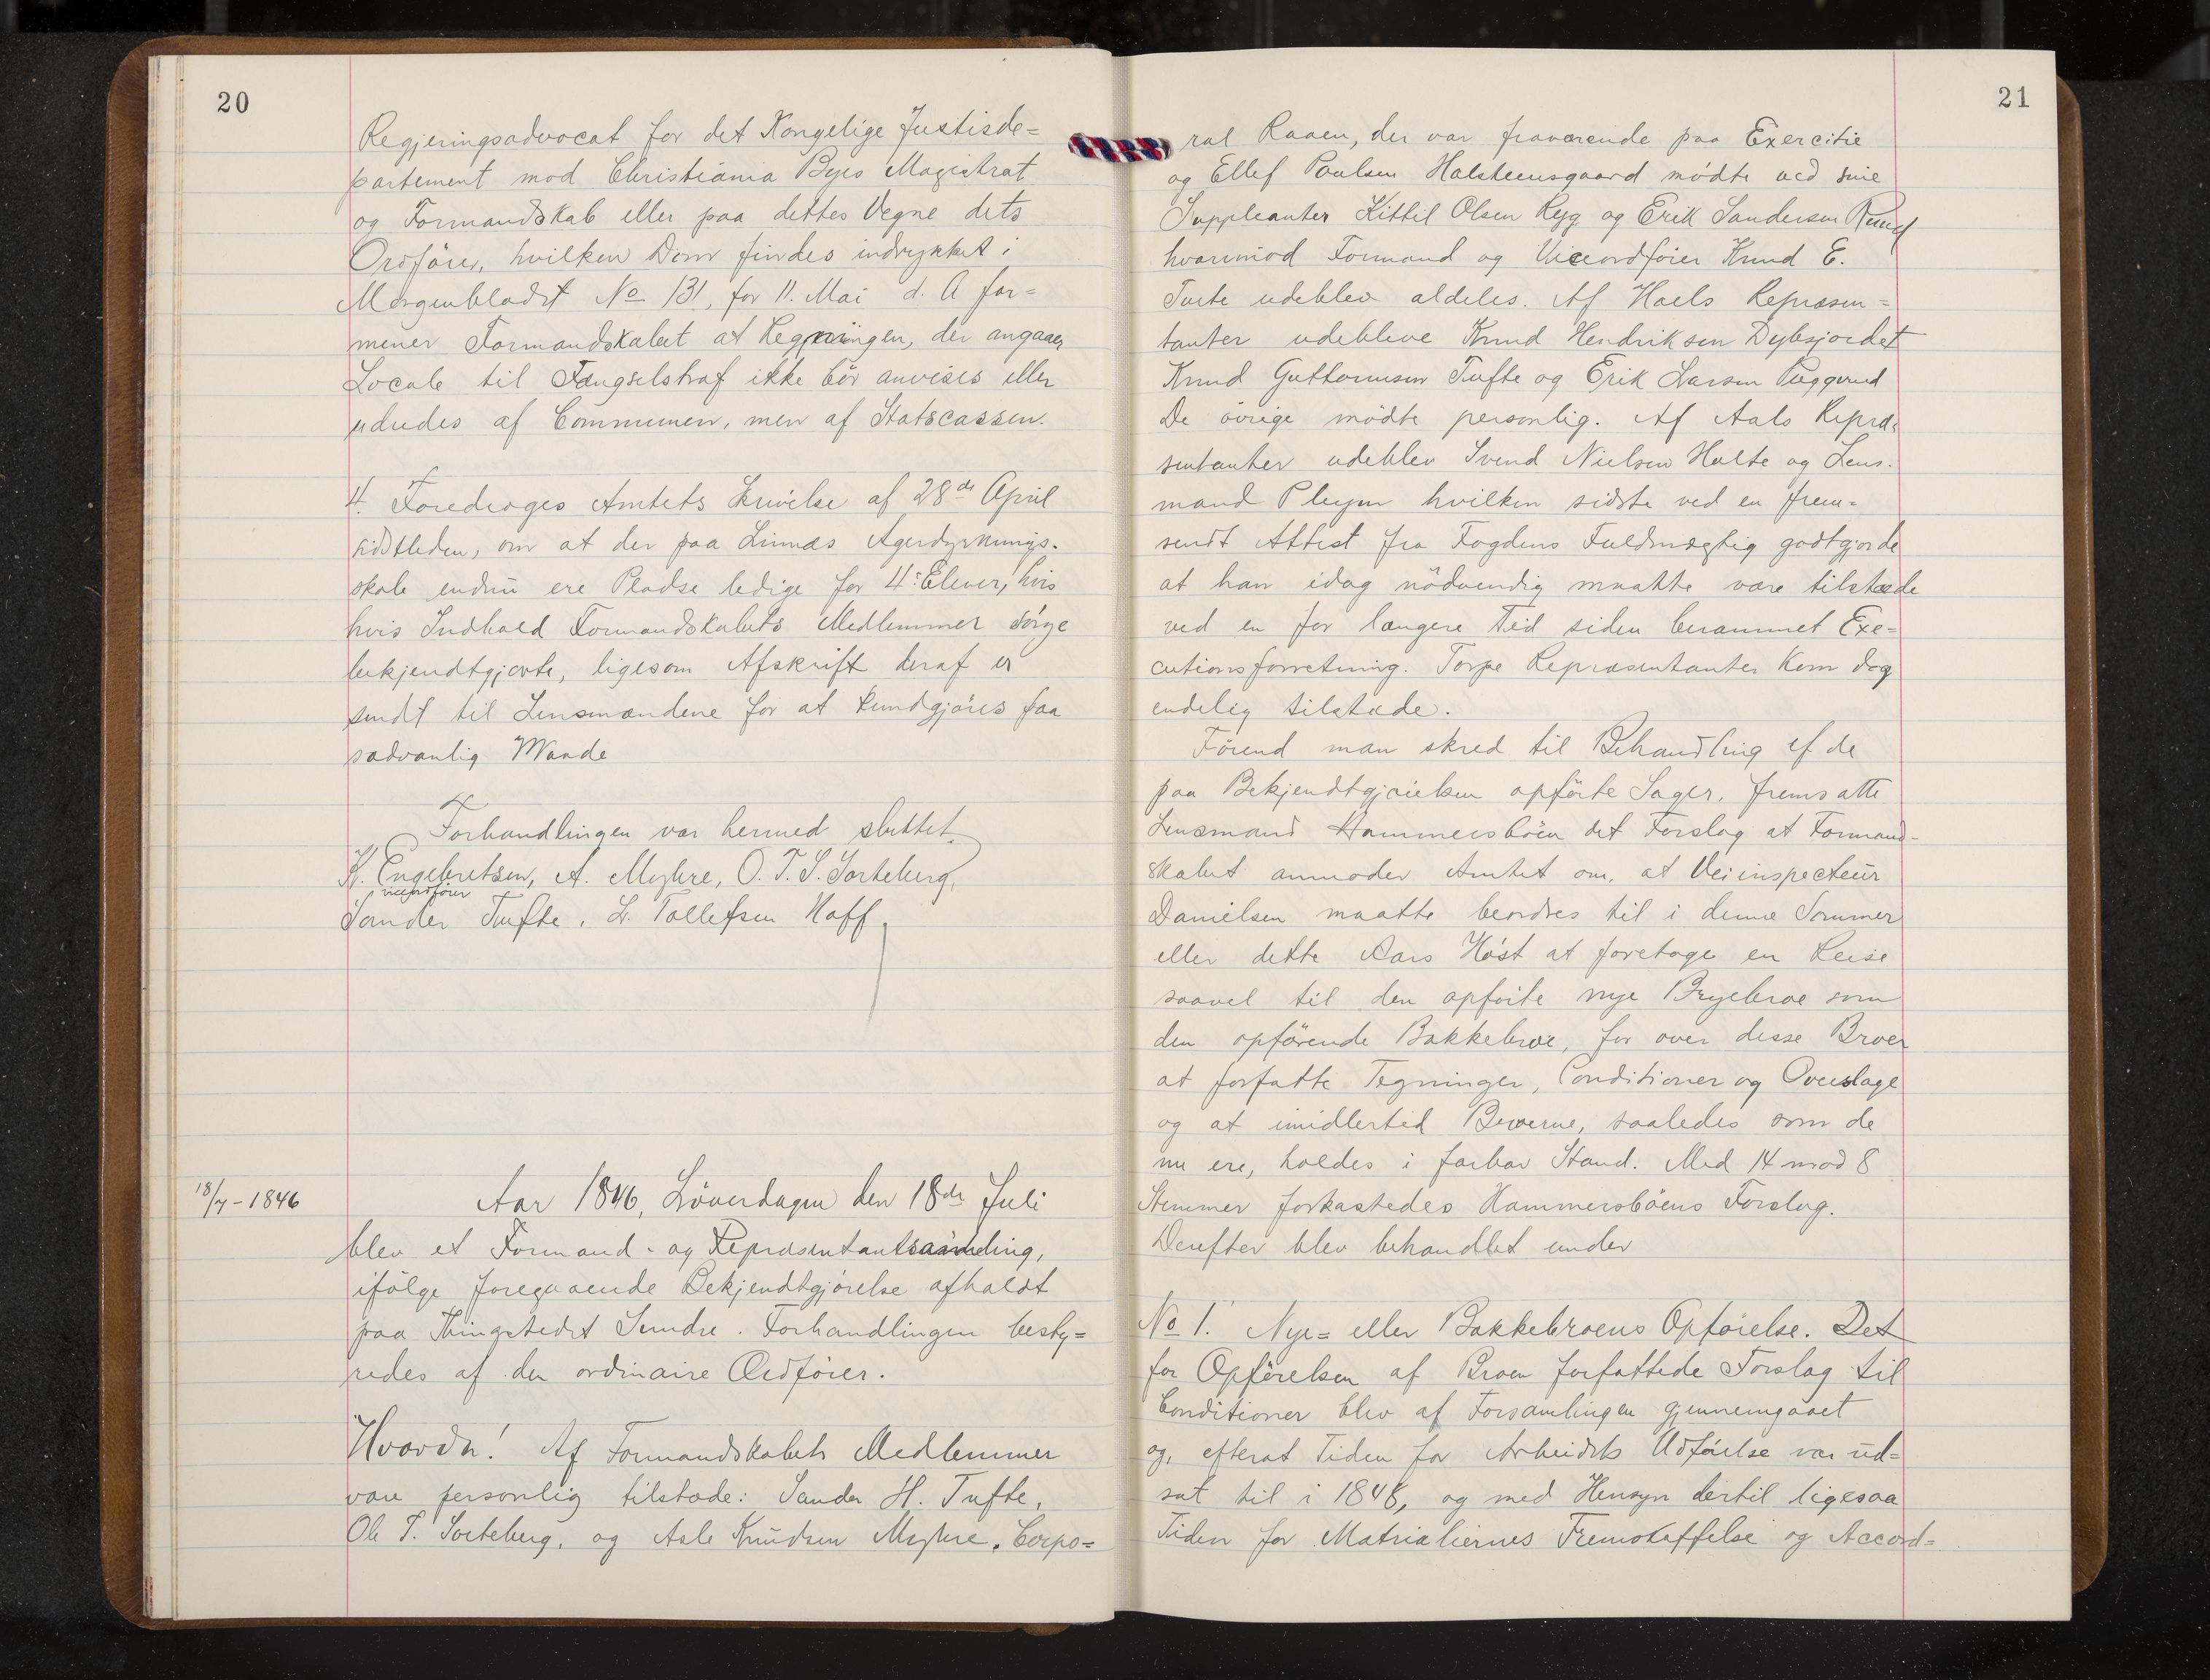 20
Regjeringsadvocat for det Kongelige Justisde=
partement mod Christiania Byes Magistrat
og Formandskab eller paa dettes Vegne dets
Ordförer, hvilken Dom findes indrykket i
Morgenbladet No 131, for 11. Mai d. A for=
mener Formandskabet at Regningen, der angaaer
Locale til Fængselstraf ikke bör anvises eller
udredes af Communen, men af Statscassen.
4. Foredroges Amtets Skrivelse af 28de April
sidstleden, om at der paa Linnæs Agerdyrknings-
skole endnu ere Pladse ledige for 4 Elever, hvis
hvis Indhold Formandskabets Medlemmer sörge
bekjendtgjorte, ligesom Afskrift deraf er
sendt til Lensmændene for at kundgjöres paa
sædvanlig Maade
Forhandlingen var hermed sluttet.
K. Engebretsen, A. Myhre, O. T. S. Sorteberg,
viceordförer
Sander Tufte. L. Tollefsen Hoff.
18/7-1846
Aar 1846, Löverdagen den 18de Juli
blev et Formand- og Repræsentantsamling,
ifölge foregaaende Bekjendtgjörelse afholdt
paa Thingstedet Sundre. Forhandlingen besty=
redes af den ordinaire Ordförer.
Hvorda! Af Formandskabets Medlemmer
vare personlig tilstæde: Sander H. Tufte,
Ole T. Sorteberg, og Asle Knudsen Myhre. Corpo=
21
ral Raaen, der var fraværende paa Exercitie
og Ellef Paulsen Halsteensgaard mödte ved sine
Suppleanter Kittil Olsen Ryg og Erik Sandersen Ruud
hvorimod Formand og Viceordförer Knud E.
Tufte udeblev aldeles. Af Hoels Repræsen=
tanter udebleve Knud Hendriksen Dybsjordet
Knud Guttormsen Tufte og Erik Larsen
De övrige mödte personlig. Af Aals Repræ=
sentanter udeblev Svend Nielsen Holte og Lens-
mand Pleym hvilken sidste ved en frem=
sendt Attest fra Fogdens Fuldmægtig godtgjorde
at han idag nödvendig maatte være tilstæde
ved en for længere Tid siden berammet Exe=
cutionsforretning. Torpe Repræsentanter kom dog
endelig tilstæde.
Förend man skred til Behandling af de
paa Bekjendtgjörelsen opförte Sager, fremsatte
Lensmand Hammersböen det Forslag at Formand-
skabet anmoder Amtet om, at Veiinspecteur
Danielsen maatte beordres til i denne Sommer
eller dette Aars Höst at foretage en Reise
saavel til den opförte nye Bryebroe som
den opförende Bakkebroe, for over disse Broer
at forfatte Tegninger, Conditioner og Overslage
og at imidlertid Broerne, saaledes som de
nu ere, holdes i farbar Stand. Med 14 mod 8
Stemmer forkastedes Hammersböens Forslag.
Derefter blev behandlet under
No 1. Nye= eller Bakkebroens Opförelse. Det
for Opförelsen af Broen forfattede Forslag til
Conditioner blev af Forsamlingen gjennemgaaet
og, efterat Tiden for Arbeidets Udförelse var ud=
sat til i 1848, og med Hensyn dertil ligesaa
Tiden for Matrialiernes Fremskaffelse og Accord=